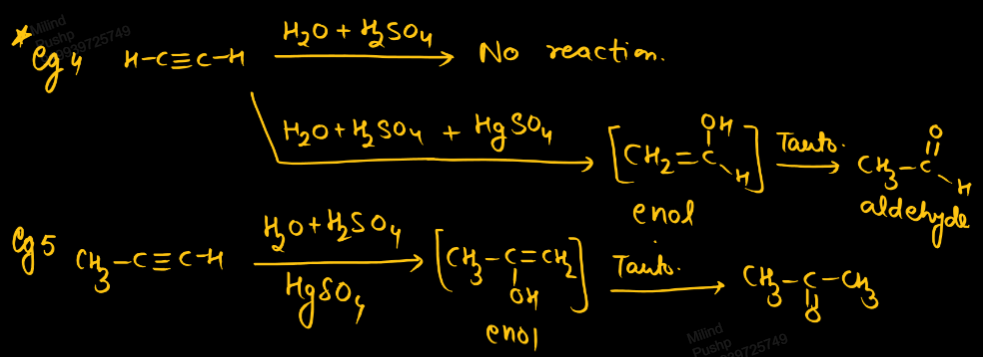 Milind
Pushp
9939725749
* Eg 4 H-C≡C-H H₂O + H₂SO₄ → No reaction.
H₂O + H₂SO₄ + HgSO₄ → [CH₂=C(OH)-H] Tauto. → CH₃-C(=O)-H
enol aldehyde
Eg 5 CH₃-C≡C-H H₂O + H₂SO₄ / HgSO₄ → [CH₃-C(OH)=CH₂] Tauto. → CH₃-C(=O)-CH₃
enol
Milind
Pushp